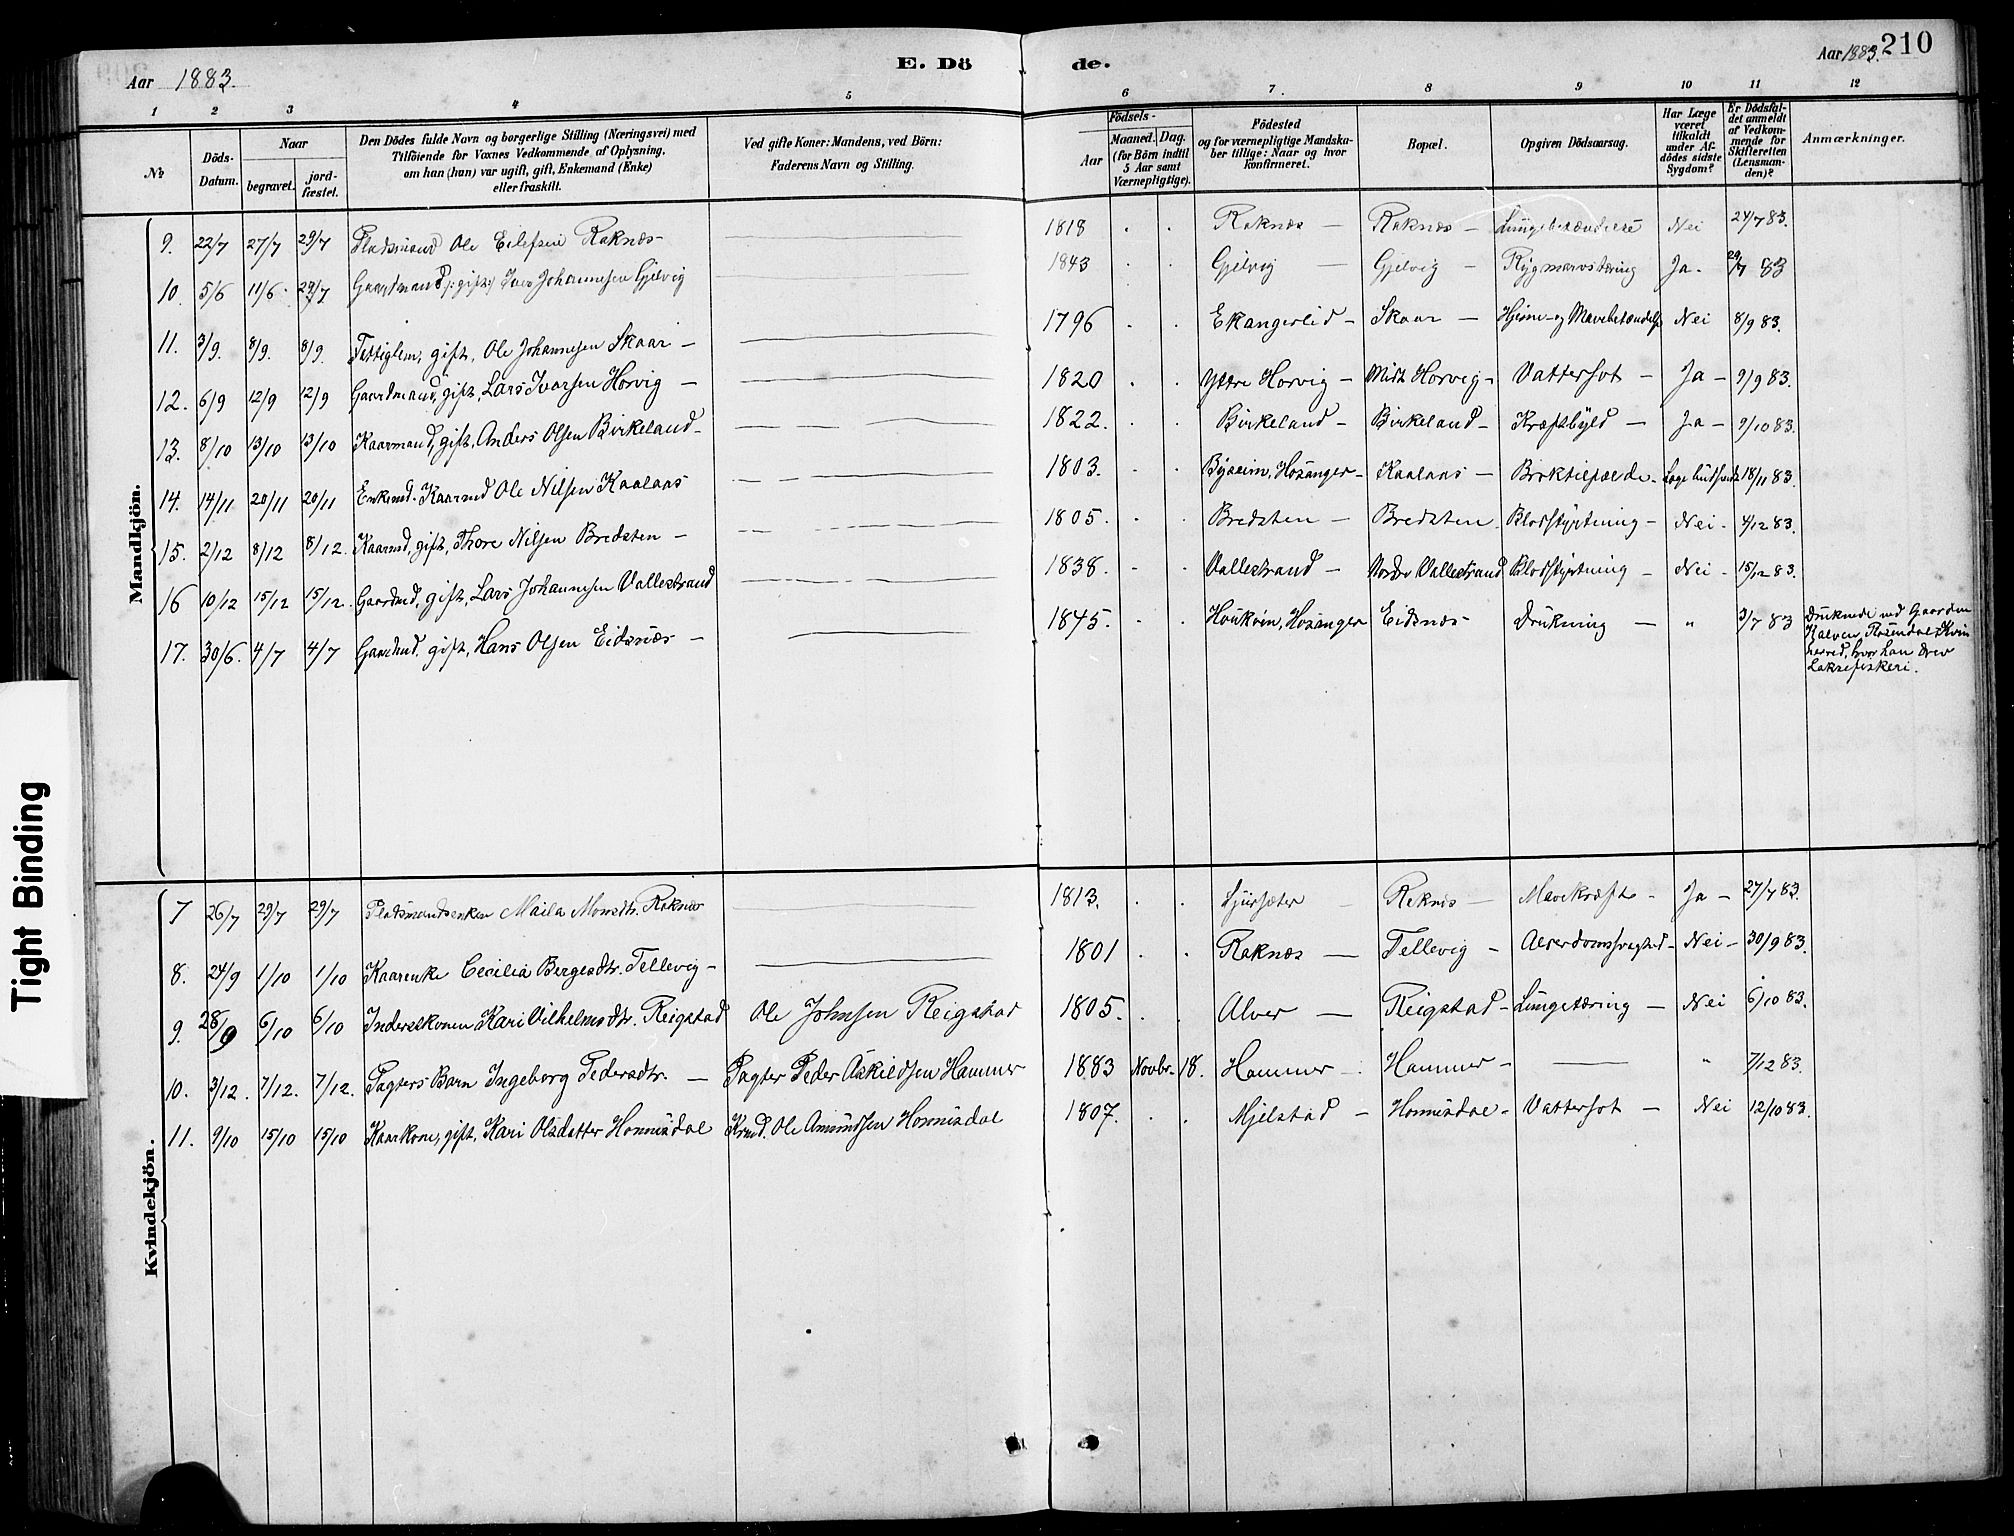 Aar 1883. E. Dö de. Aar 1883. 210
1 2 3 4 5 6 7. 8 9 10 11 12
№ Döds-Datum. Naar begravet. jord-fæstet. Den Dödes fulde Navn og borgerlige Stilling (Næringsvei) med Tilföiende for Voxnes Vedkommende af Oplysning, om han (hun) var ugift, gift, Enkemand (Enke) eller fraskilt. Ved gifte Koner: Mandens, ved Börn: Faderens Navn og Stilling. Födsels- Aar Maaned. Dag. (for Börn indtil 5 Aar samt Værnepligtige). Födested og for værnepligtige Mandskaber tillige: Naar og hvor konfirmeret. Bopæl. Opgiven Dödsaarsag. Har Læge været tilkaldt under Afdödes sidste Sygdom? Er Dödsfaldet anmeldt af Vedkommende for Skifteretten (Lensmanden)? Anmærkninger.
Mandkjön.
9. 22/7 27/7 29/7 Pladsmand Ole Eilefsen Raknæs 1818 Raknæs — Raknæs — Lungebetændelse Nei 24/7 83.
10. 5/6 11/6. 29/7 Gaardmand (: gift :) Iver Johannesen Gjelvig 1843 Gjelvig — Gjelvig — Rygmarvstæring Ja. 29/7 83
11. 3/9. 8/9. 8/9. gift, Ole Johannesen Skaar — 1796 Ekangerlid — Skaar — Hjerne- og Mavebetændelse Nei 8/9 83.
12. 6/9 12/9 12/9 Gaardmand, gift, Lars Ivarsen Horvig — 1820 Yttre Horvig — Midt Horvig — Vattersot — Ja — 9/9 83.
13. 8/10 13/10 13/10 Kaarmand, gift, Anders Olsen Birkeland — 1822. Birkeland — Birkeland — Kræftbyld — Ja — 9/10 83.
14. 14/11 20/11 20/11 Enkemd. Kaarmd Ole Nilsen Kaalaas 1803. Byseim, Hosanger — Kaalaas — Broktilfælde — 18/11 83.
15. 2/12 8/12 8/12. Kaarmd, gift, Thore Nilsen Bredsten — 1805. Bredsten — Bredsten. Blodstyrtning — Nei — 4/12 83.
16 10/12 15/12 15/12. Gaardmd, gift, Lars Johannesen Vallestrand 1838. Vallestrand — Nordre Vallestrand Blodstyrtning — Nei — 15/12 83.
17. 30/6. 4/7 4/7 Gaardmd. gift, Hans Olsen Eidsnæs — 1845. Hosanger Eidsnæs — Drukning — " 3/7 83 Druknede ved Gaarden
Kalven, Rosendal, Kvin
herred, hvor han drev
Laksefiskeri.
Kvindekjön.
7 26/7 29/7 29/7 Pladsmandsenken Maila Monsdtr. Raknæs 1813. Sjursæter — Reknes — Mavekræft — Ja — 27/7 83.
8. 24/9 1/10 1/10 Kaarenke Cecilia Bergesdtr. Tellevig — 1801 Raknæs — Tellevig — Alderdomssvaghed — Nei — 30/9 83.
9. 28/9 6/10 6/10 Inderstkonen Kari Vilhelmsdtr. Reigstad Ole Johnsen Reigstad 1805. Alver — Reigstad — Lungetæring — Nei 6/10 83.
10. 3/12. 7/12. 7/12. Pagters Barn Ingeborg Pedersdtr. — Pagter Peder Askildsen Hammer 1883 Novbr. 18. Hammer — Hammer — — " 7/12 83.
11. 9/10 15/10 15/10 Kaarkone, gift, Kari Olsdatter Honnisdal Krmd. Ole Amundsen Honnisdal 1807. Mjelstad — Honnisdal — Vattersot — Nei 12/10 83.
Tight Binding